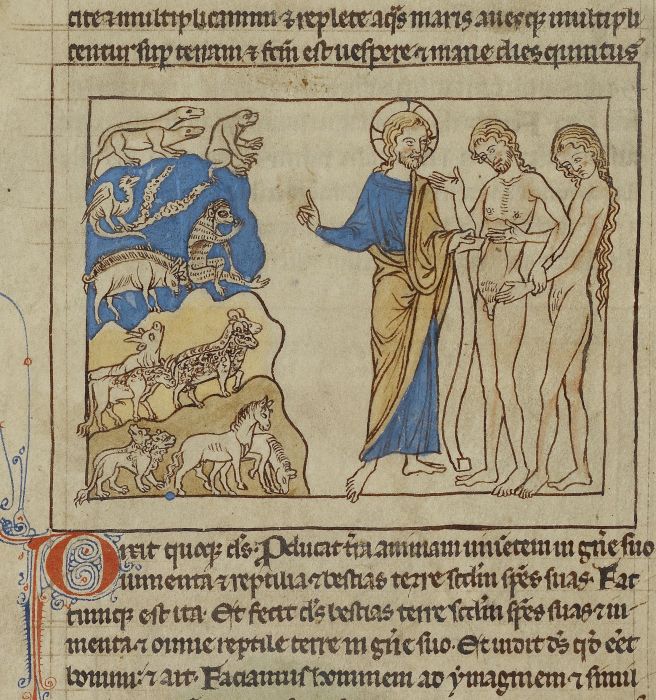 cite & multiplicamini & replete aqs maris auesqz multipli
centur sup terram & fcm est uespere & mane dies quintus
Dixit quoqz ds. Producat tra animam uiuentem in gne suo
iumenta & reptilia & bestias terre scdm spes suas. Fac
tumqz est ita. Et fecit ds bestias terre scdm spes suas & iu
menta & omne reptile terre in gne suo. Et uidit ds qd eet
bonum: & ait. Faciamus hominem ad ymaginem & simil